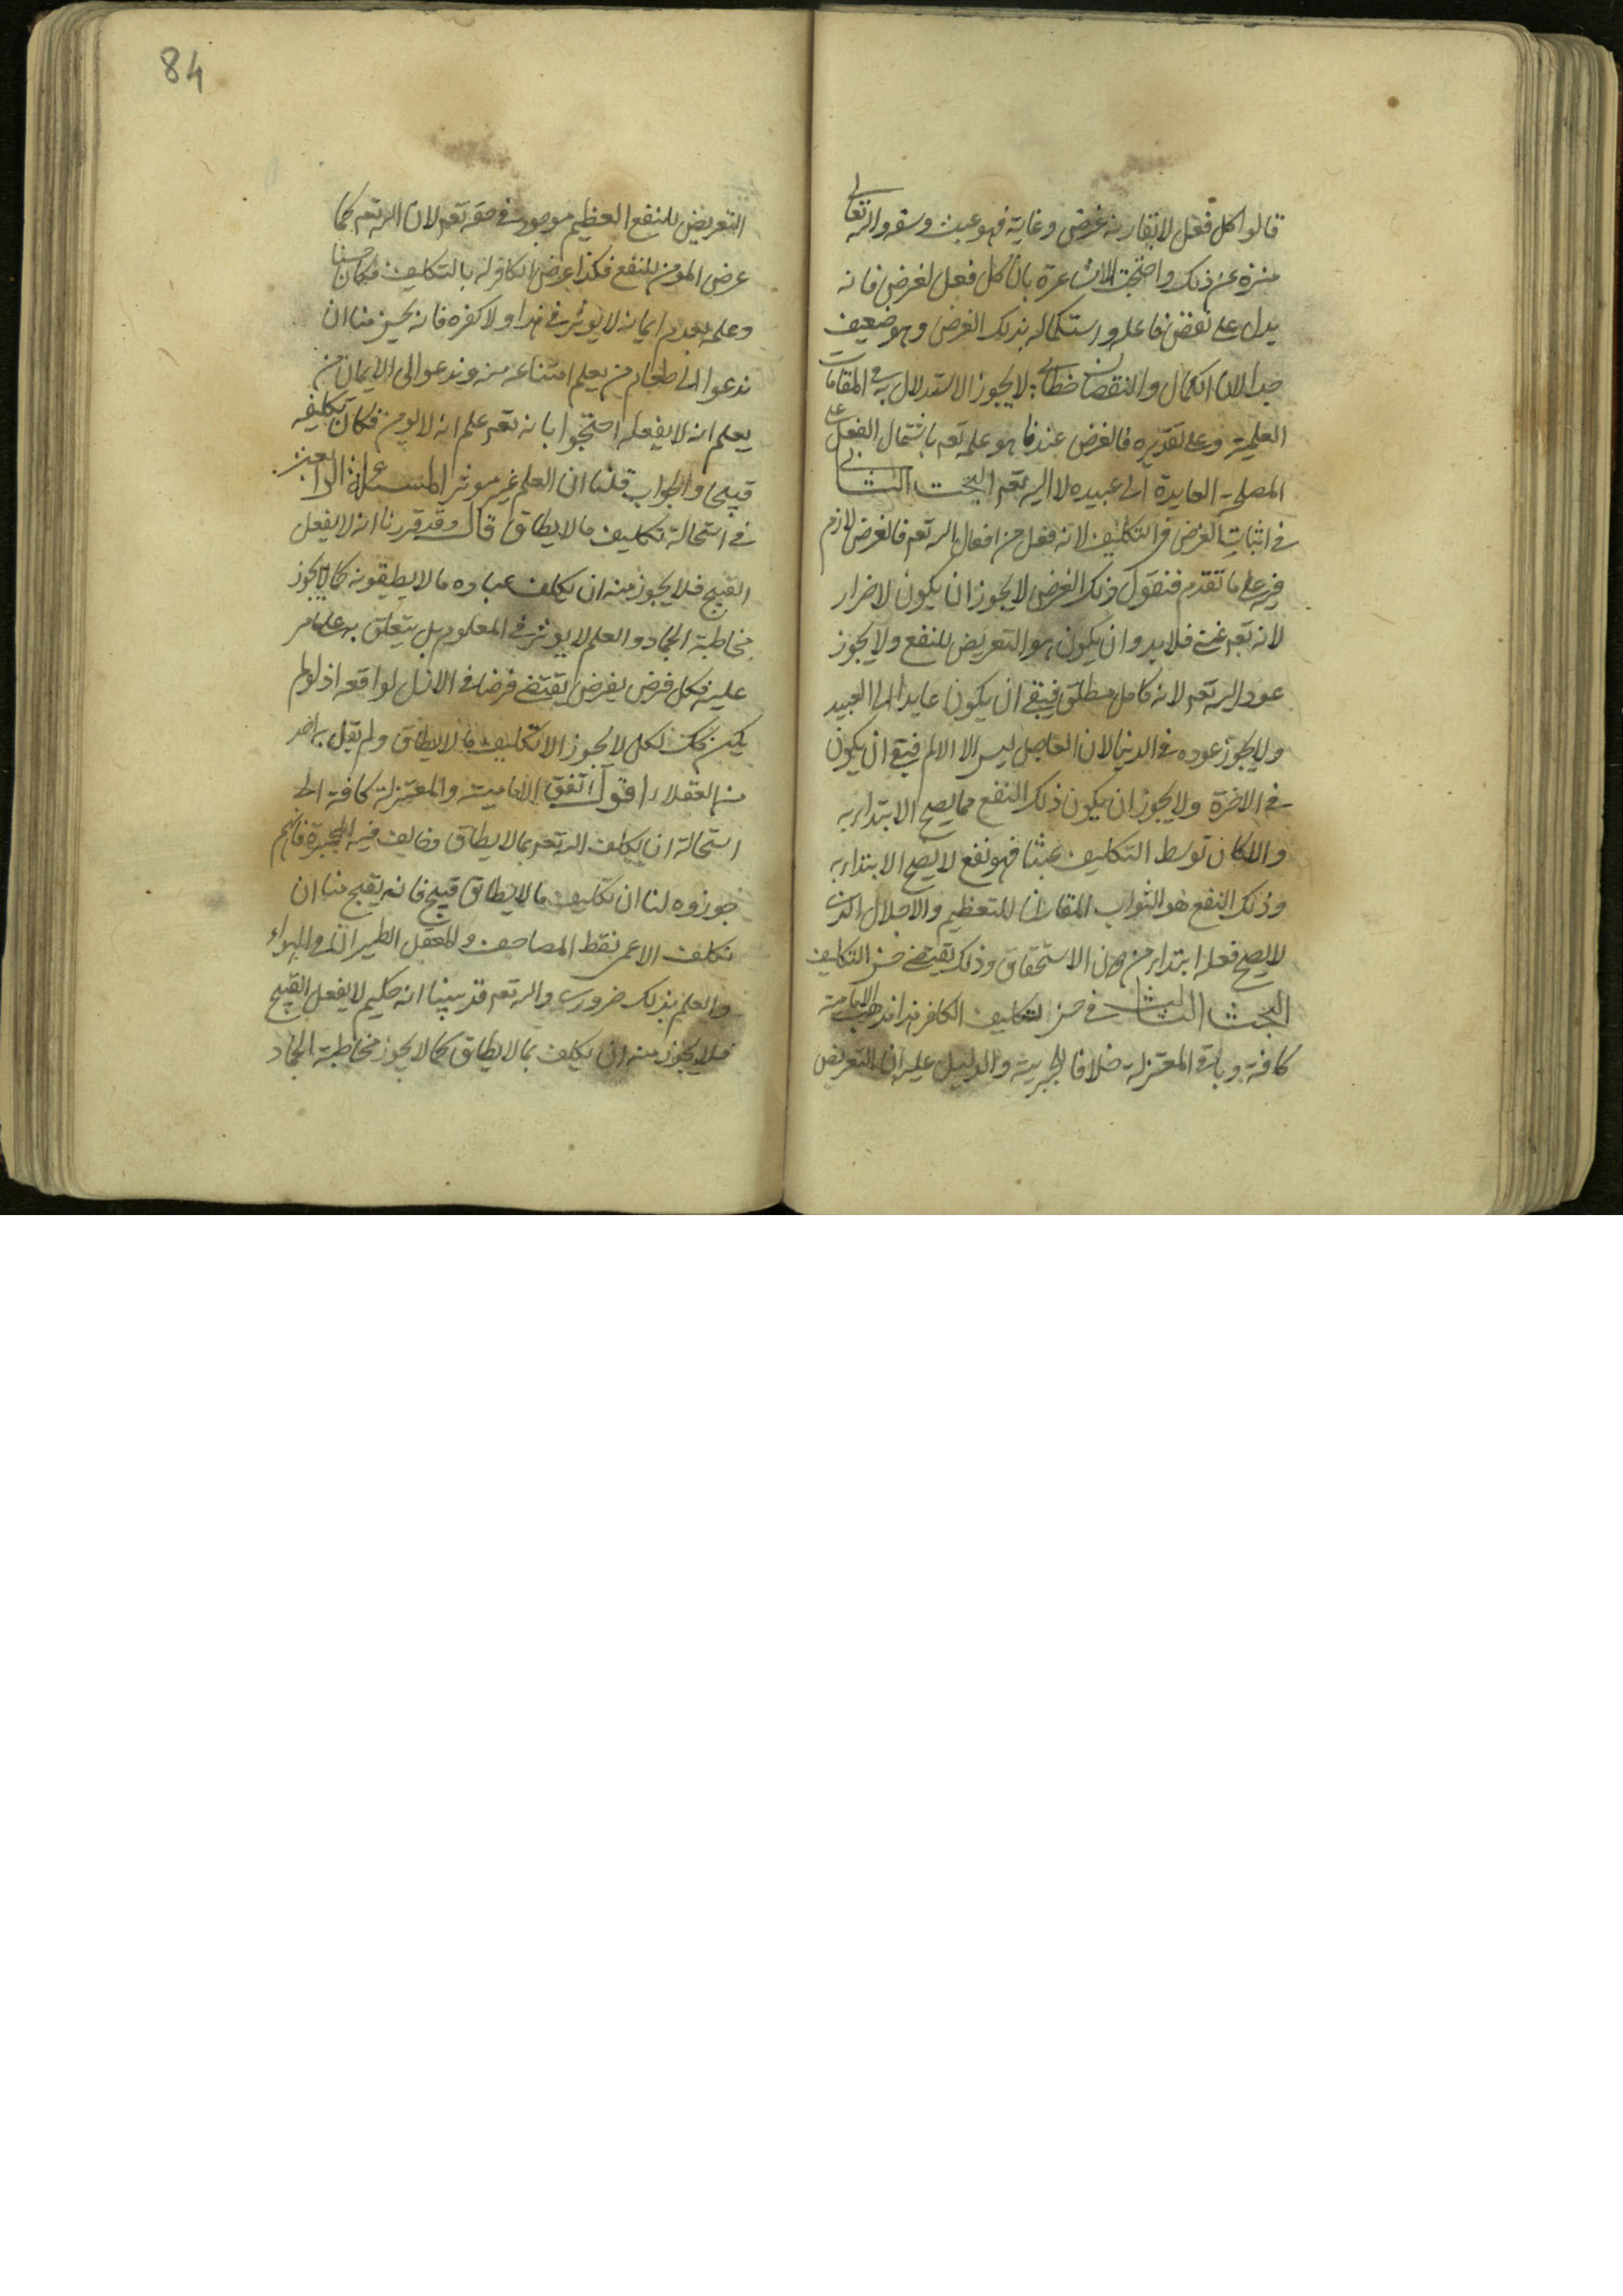 قالوا كل فعل لا يقارنه غرض وغاية فهو عبث وسفه والله تعالى
منزه عن ذلك واحتجت الاشاعرة بان كل فعل لغرض فانه
يدل على نقض فاعله واستكماله بذلك الغرض وهو ضعيف
جدا لان الكمال والنقصان خطابي لا يجوز الاستدلال به في المقامات
العلمية وعلى تقديره فالغرض عندنا هو علمه تعم باشتمال الفعل على
المصلحة العايدة الى عبيده لا اليه تعم البحث الثاني
في اثبات الغرض في التكليف لانه فعل من افعال الله تعم فالغرض لازم
فيه على ما تقدم فنقول ذلك الغرض لا يجوز ان يكون لاضرار
لانه تعم غني فلا بد وان يكون هو التعريض للنفع ولا يجوز
عود اليه تعم لانه كامل مطلق فيبقى ان يكون عايدا الى العبيد
ولا يجوز عوده في الدنيا لان الحاصل ليس الا الالم فيبقى ان يكون
في الاخرة ولا يجوز ان يكون ذلك النفع مما يصح الابتداء به
والا لكان توسط التكليف عبثا فهو نفع لا يصح الابتداء به
وذلك النفع هو الثواب المقارن للتعظيم والاجلال الذي
لا يصح فعله ابتداء من دون الاستحقاق وذلك يقتضي حسن التكليف
البحث الثالث في حسن تكليف الكافر هذا مذهب الامامية
كافة وباقي المعتزلة خلافا للجبرية والدليل عليه ان التعريض
84
التعريض للنفع العظيم موجود في حقه تعم لان الله تعم كما
عرض المومن للنفع فكذا عرض الكافر له بالتكليف فكان حسنا
وعلمه بعدم ايمانه لا يوثر في هذا ولا كفره فانه يحسن منا ان
ندعوا الى طعام من يعلم امتناعه منه وندعوا الى الايمان من
يعلم انه لا يفعله احتجوا بانه تعم علم انه لا يومن فكان تكليفه
قبيحا والجواب قلنا ان العلم غير موثر المسئلة الرابعة
في استحالة تكليف ما لا يطاق قال وقد قررنا انه لا يفعل
القبيح فلا يجوز منه ان يكلف عباده ما لا يطيقونه كما لا يجوز
مخاطبة الجماد والعلم لا يوثر في المعلوم بل يتعلق به على ما هو
عليه فكل فرض يفرض يقتضي فرضا في الازل لواقعه اذ لو لم
يكن كذلك لكل لا يجوز الا تكليف ما لا يطاق ولم يقل به احد
من العقلاء اقول اتفق الامامية والمعتزلة كافة الى
استحالة ان يكلف الله تعم بما لا يطاق وخالف فيه المجبرة فانهم
جوزوه لنا ان تكليف ما لا يطاق قبيح فانه يقبح منا ان
نكلف الاعمى نقط المصاحف والمعقل الطيران في الهواء
والعلم بذلك ضروري والله تعم قد بينا انه حكيم لا يفعل القبيح
فلا يجوز منه ان يكلف بما لا يطاق كما لا يجوز مخاطبة الجماد